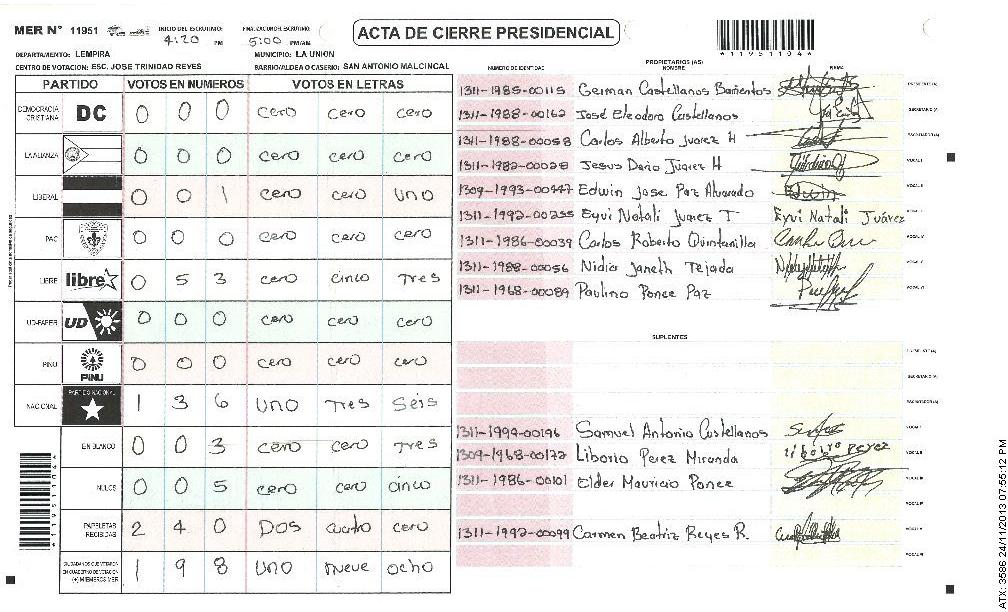 MER N° 11951
INICIO DEL ESCRUTINIO: 4:20 PM
FINALIZACION ESCRUTINIO: 5:00 PM/AM
ACTA DE CIERRE PRESIDENCIAL
11951104
DEPARTAMENTO: LEMPIRA
MUNICIPIO: LA UNION
CENTRO DE VOTACION: ESC. JOSE TRINIDAD REYES
BARRIO/ALDEA O CASERIO: SAN ANTONIO MALCINCAL
PARTIDO VOTOS EN NUMEROS VOTOS EN LETRAS
DEMOCRACIA CRISTIANA DC 0 0 0 cero cero cero
LA ALIANZA 0 0 0 cero cero cero
LIBERAL 0 0 1 cero cero uno
PAC 0 0 0 cero cero cero
LIBRE libre 0 5 3 cero cinco Tres
UD-FAPER UD 0 0 0 cero cero cero
PINU PINU 0 0 0 cero cero cero
NACIONAL PARTIDO NACIONAL 1 3 6 uno Tres Seis
EN BLANCO 0 0 3 cero cero Tres
NULOS 0 0 5 cero cero cinco
PAPELETAS RECIBIDAS 2 4 0 Dos cuatro cero
CIUDADANOS QUE VOTARON EN CUADERNO DE VOTACION (+) MIEMBROS MER 1 9 8 uno nueve ocho
NUMERO DE IDENTIDAD PROPIETARIOS (AS) NOMBRE FIRMA
1311-1985-00115 German Castellanos Barrientos PRESIDENTE (A)
1311-1988-00162 José Eleodoro Castellanos SECRETARIO (A)
1311-1988-00058 Carlos Alberto Juarez H ESCRUTADOR (A)
1311-1982-00028 Jesus Dario Júarez H VOCAL I
1309-1993-00447 Edwin Jose Paz Alvarado Edwin VOCAL II
1311-1992-00255 Eyvi Natali Juarez T Eyvi Natali Juárez VOCAL III
1311-1986-00039 Carlos Roberto Quintanilla VOCAL IV
1311-1988-00056 Nidia Janeth Tejada VOCAL V
1311-1968-00089 Paulino Ponce Paz VOCAL VI
SUPLENTES
PRESIDENTE (A)
SECRETARIO (A)
ESCRUTADOR (A)
1311-1994-00196 Samuel Antonio Castellanos VOCAL I
1309-1968-00172 Liborio Perez Miranda Liborio Perez VOCAL II
1311-1986-00101 Elder Mauricio Ponce VOCAL III
VOCAL IV
1311-1992-00099 Carmen Beatriz Reyes R. VOCAL V
VOCAL VI
11951104
ATX: 3586 24/11/2013 07:55:12 PM